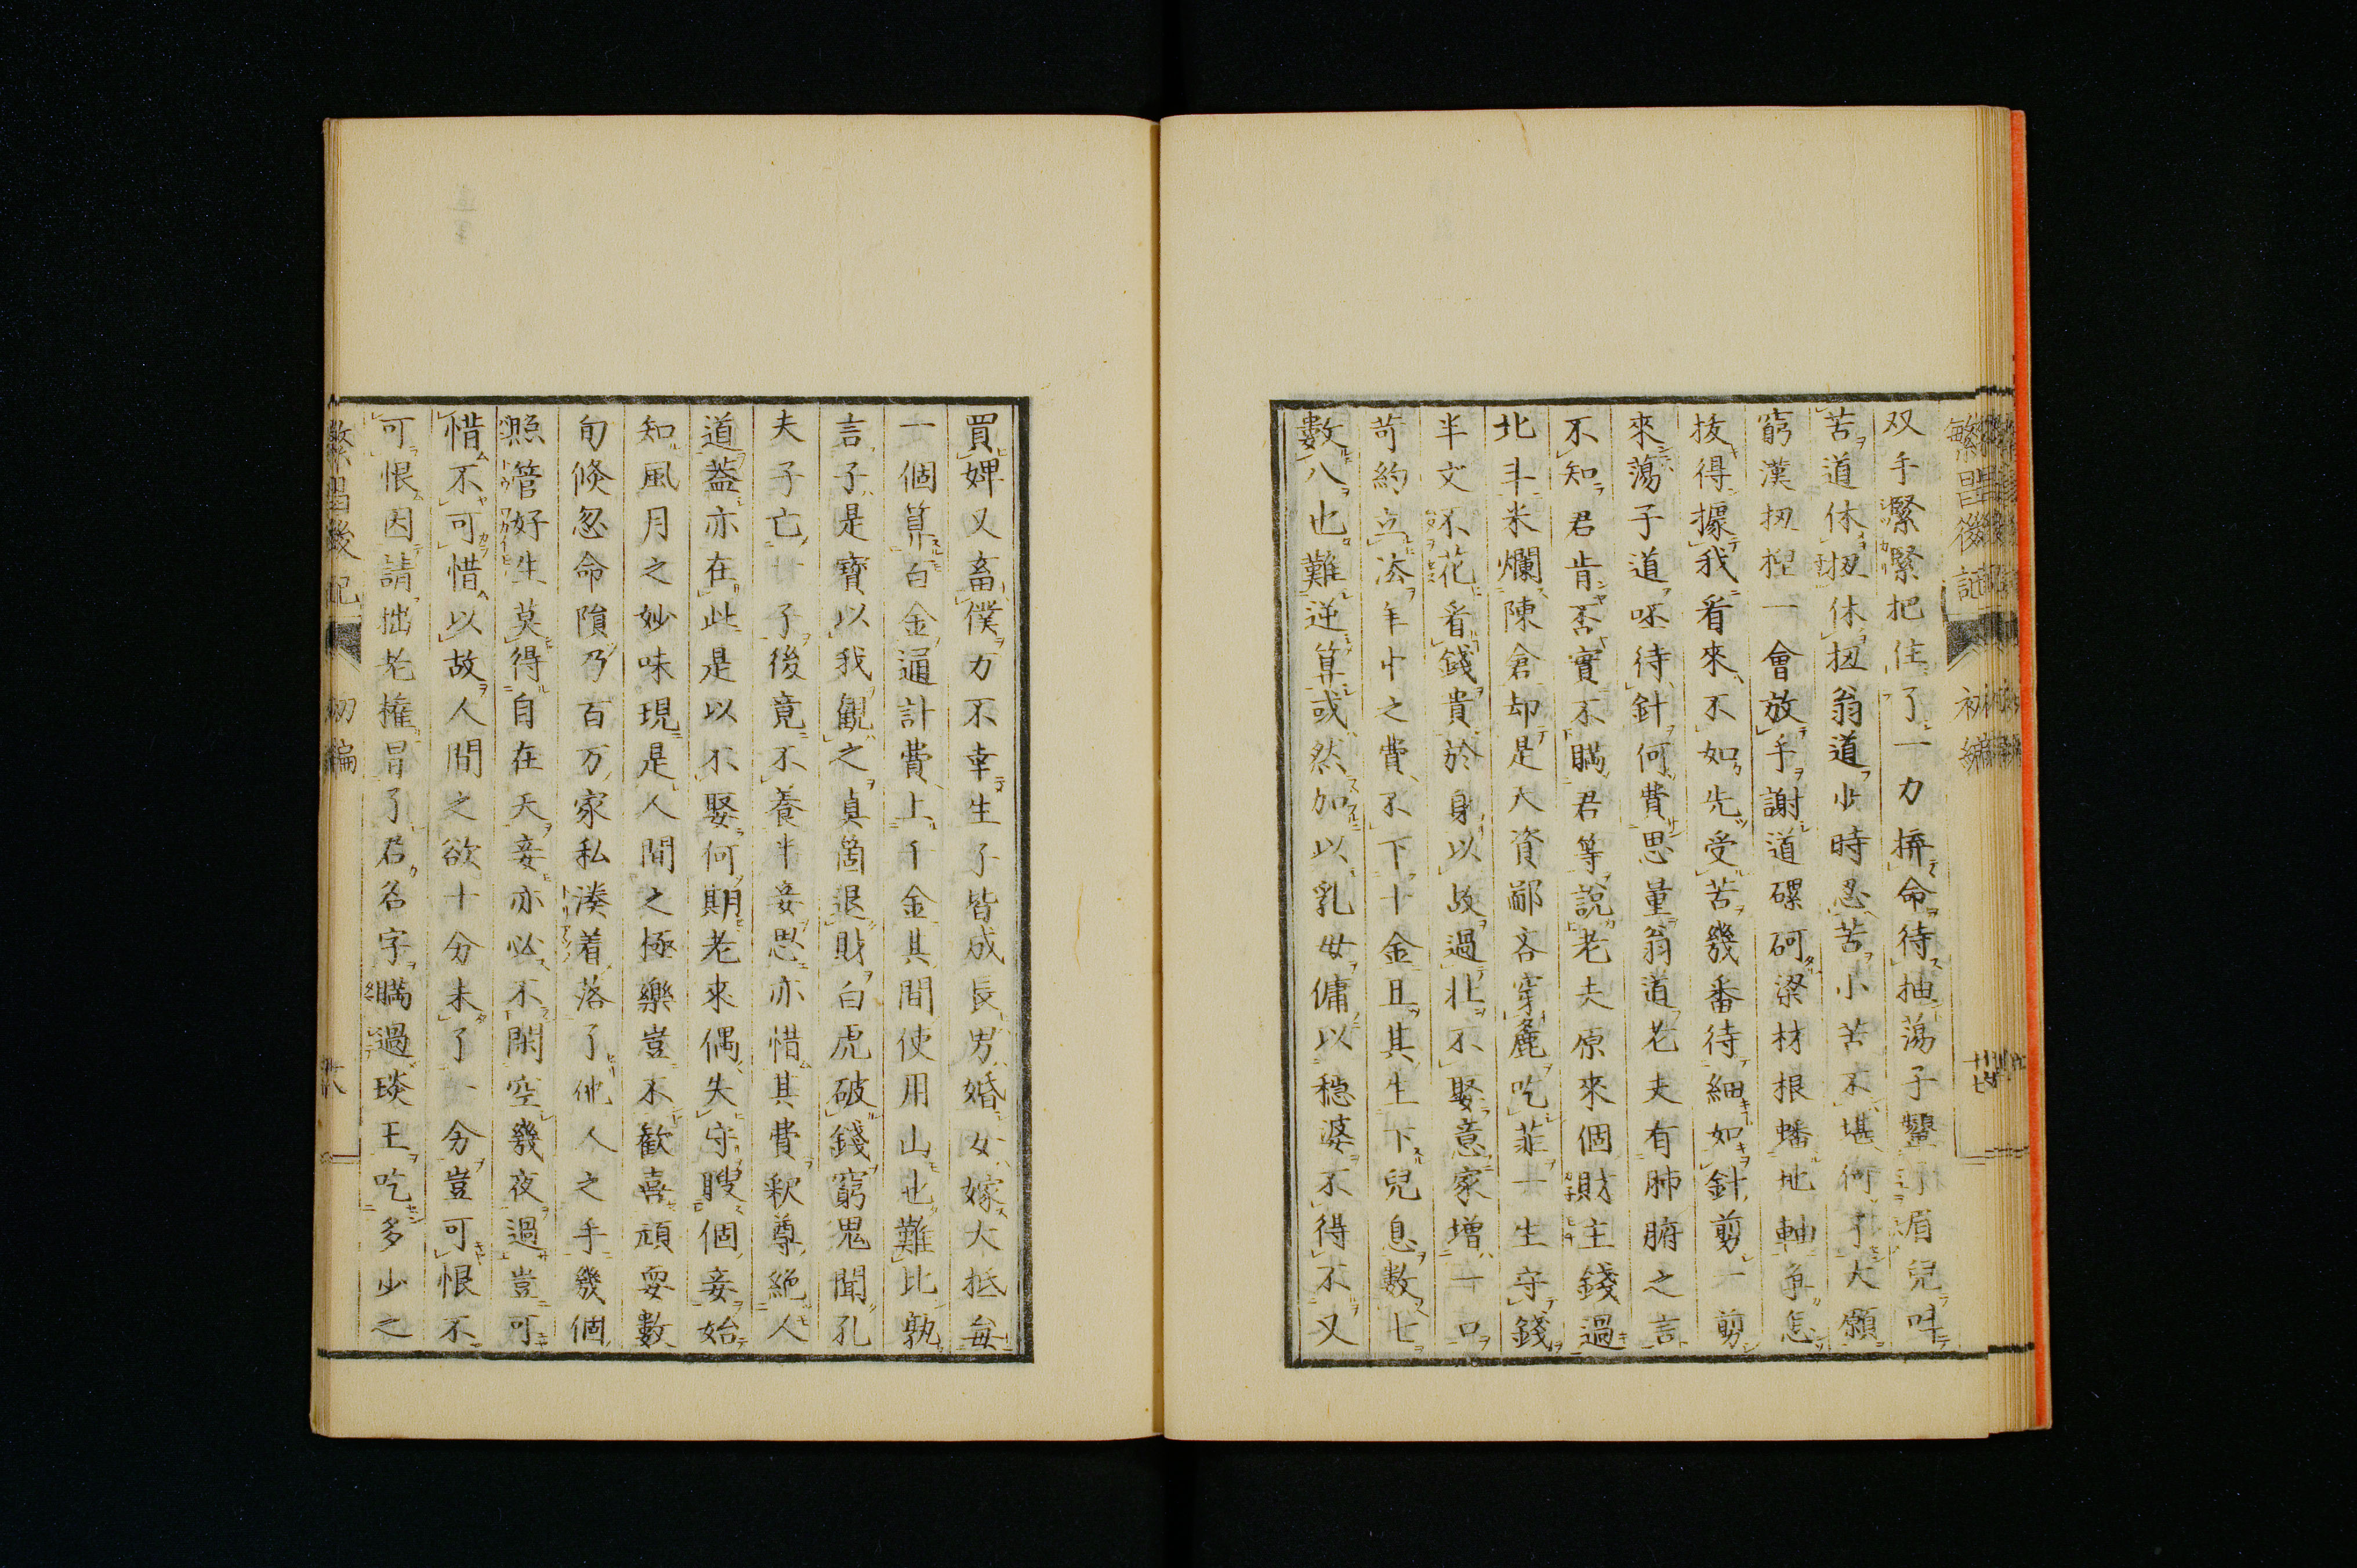 繁昌後記 初編
双手緊緊把住了一力拚命待抽蕩子顰了眉兒叫
苦道休扨休扨翁道少時忍苦小苦不堪何了大願
窮漢扨揑一會放手謝道磥砢梁材根蟠地軸争怎
拔得據我看來不如先受苦幾番待細如針剪一剪
來蕩子道呸待針何費思量翁道老夫有肺腑之言
不知君肯否實不瞞君等說老夫原來個財主錢過
北斗米爛陳倉却是人資鄙吝穿麁吃菲一生守錢
半文不花看錢貴於身以故過壯不娶意家增一口
苛約立法年中之費不下十金且其生下兒息數七
數八也難逆算或然加以乳母傭以穩婆不得不又
買婢又畜僕万不幸生了皆成長男婚女嫁大抵每
一個算白金通計費上千金其間使用山也難比孰
言子是寶以我觀之眞箇退財白虎破錢窮鬼聞孔
夫子亡一子後竟不養半妾思亦惜其費釈尊絶人
道葢亦在此是以不娶何期老來偶失守瞍個妾始
知風月之妙味現是人間之極樂豈不歓喜頑耍數
旬倐忽命隕乃百万家私湊着落了他人之手幾個
照管好生莫得自在天妾亦必不閑空幾夜過豈可
惜不可惜以故人間之欲十分未了一分豈可恨不
可恨因請拙老權冒了君名字瞞過琰王吃多少之
繁昌後記 初編